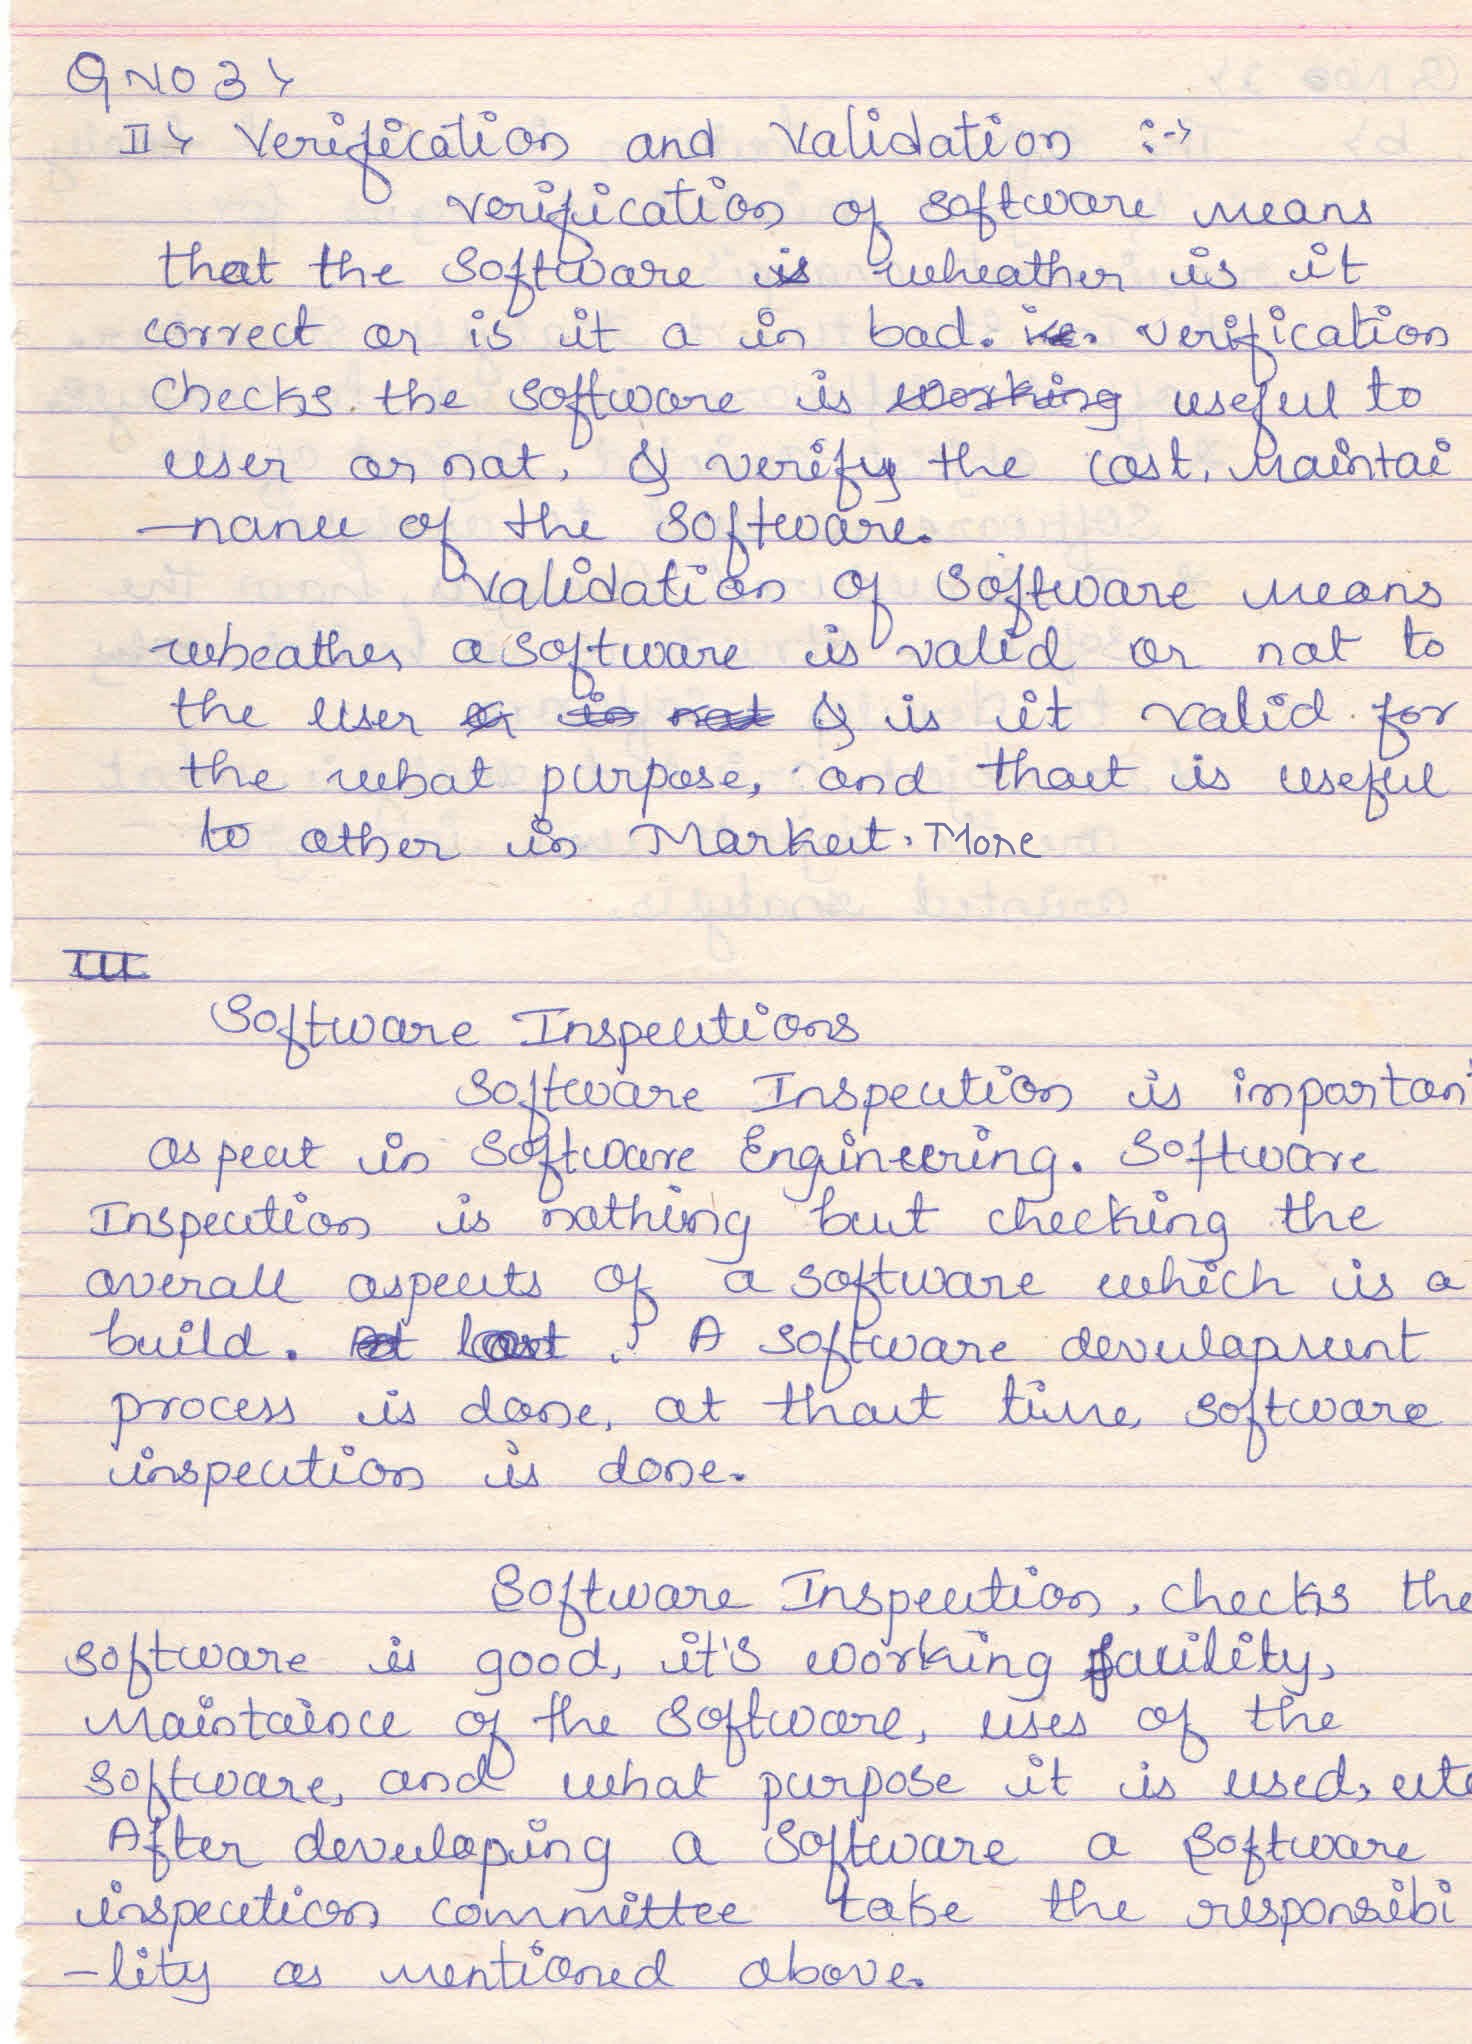 Q NO 3 >
II > Verification and Validation :->
Verification of software means
that the software is wheather is it
correct or is it a in bad. i.e. Verification
checks the software is working useful to
user or not, & verify the cost, Maintai
-nance of the software.
Validation of software means
wheather a software is valid or not to
the user or is not & is it valid for
the what purpose, and that is useful
to other in Market. More
III
Software Inspections
Software Inspection is important
aspect in Software Engineering. Software
Inspection is nothing but checking the
overall aspects of a software which is a
build. At last . A software development
process is done, at that time software
inspection is done.
Software Inspection, checks the
software is good, it's working facility,
Maintaince of the software, uses of the
software, and what purpose it is used, etc
After developing a software a software
inspection committee take the responsibi
-lity as mentioned above.